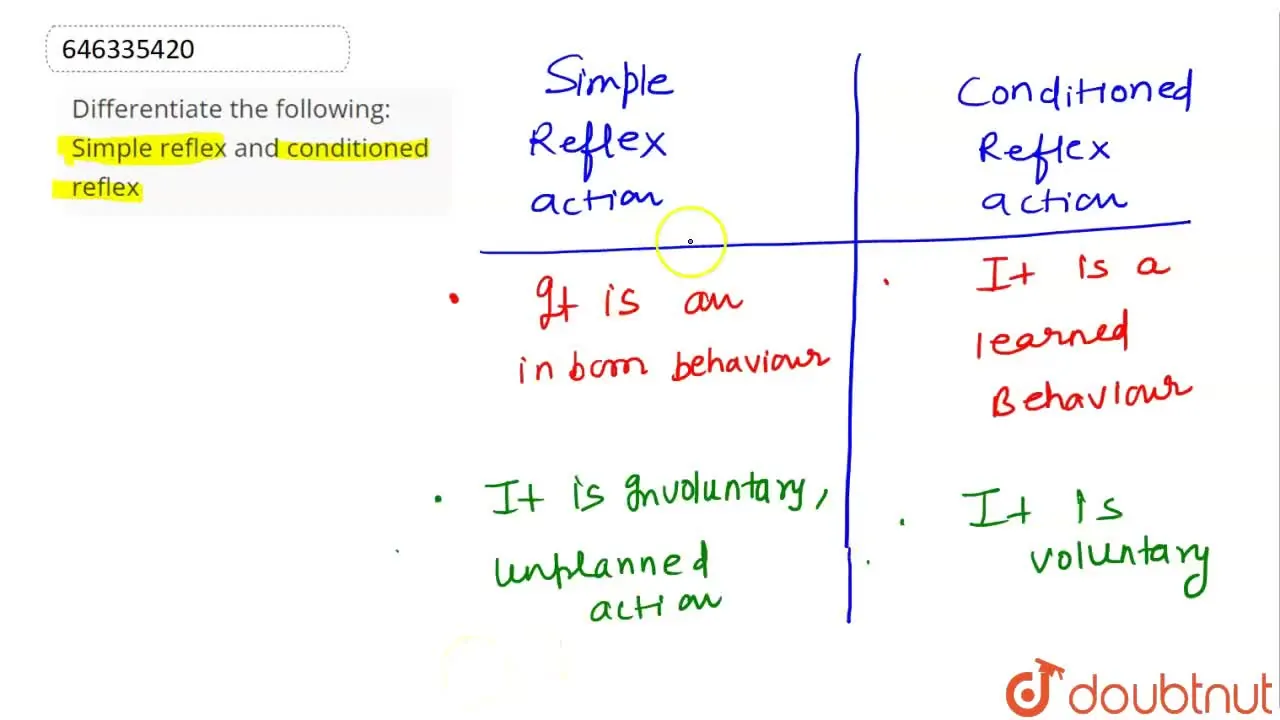 646335420
Differentiate the following:
Simple reflex and conditioned
reflex
Simple
Reflex
action
Conditioned
Reflex
action
• It is an
inborn behaviour
• It is a
learned
Behaviour
• It is Involuntary,
unplanned
action
• It is
voluntary
doubtnut